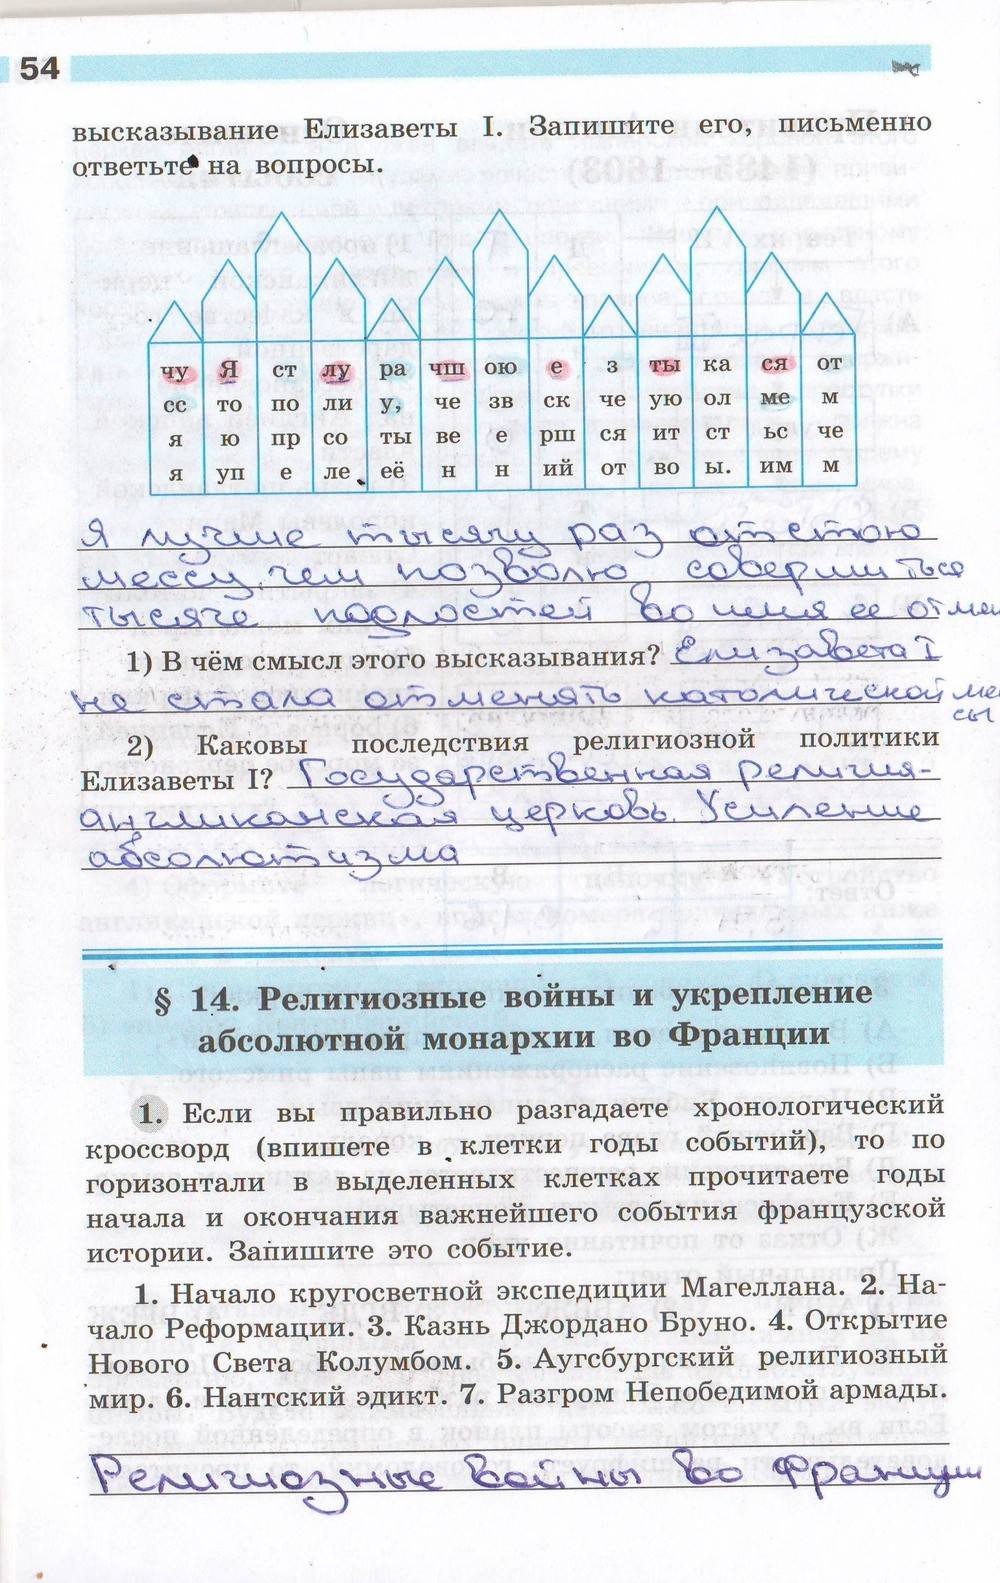 54
высказывание Елизаветы I. Запишите его, письменно
ответьте на вопросы.
чу Я ст лу ра чш ою е з ты ка ся от
сс то по ли у, че зв ск че ую ол ме м
я ю пр со ты ве е рш ся ит ст ьс че
я уп е ле её н н ий от во ы. им м
Я лучше тысячу раз отстою
мессу, чем позволю совершиться
тысяче подлостей во имя ее отмен
1) В чём смысл этого высказывания? Елизавета I
не стала отменять католической мес
сы
2) Каковы последствия религиозной политики
Елизаветы I? Государственная религия-
англиканская церковь. Усиление
абсолютизма
§ 14. Религиозные войны и укрепление
абсолютной монархии во Франции
1. Если вы правильно разгадаете хронологический
кроссворд (впишете в клетки годы событий), то по
горизонтали в выделенных клетках прочитаете годы
начала и окончания важнейшего события французской
истории. Запишите это событие.
1. Начало кругосветной экспедиции Магеллана. 2. На-
чало Реформации. 3. Казнь Джордано Бруно. 4. Открытие
Нового Света Колумбом. 5. Аугсбургский религиозный
мир. 6. Нантский эдикт. 7. Разгром Непобедимой армады.
Религиозные войны во Франции